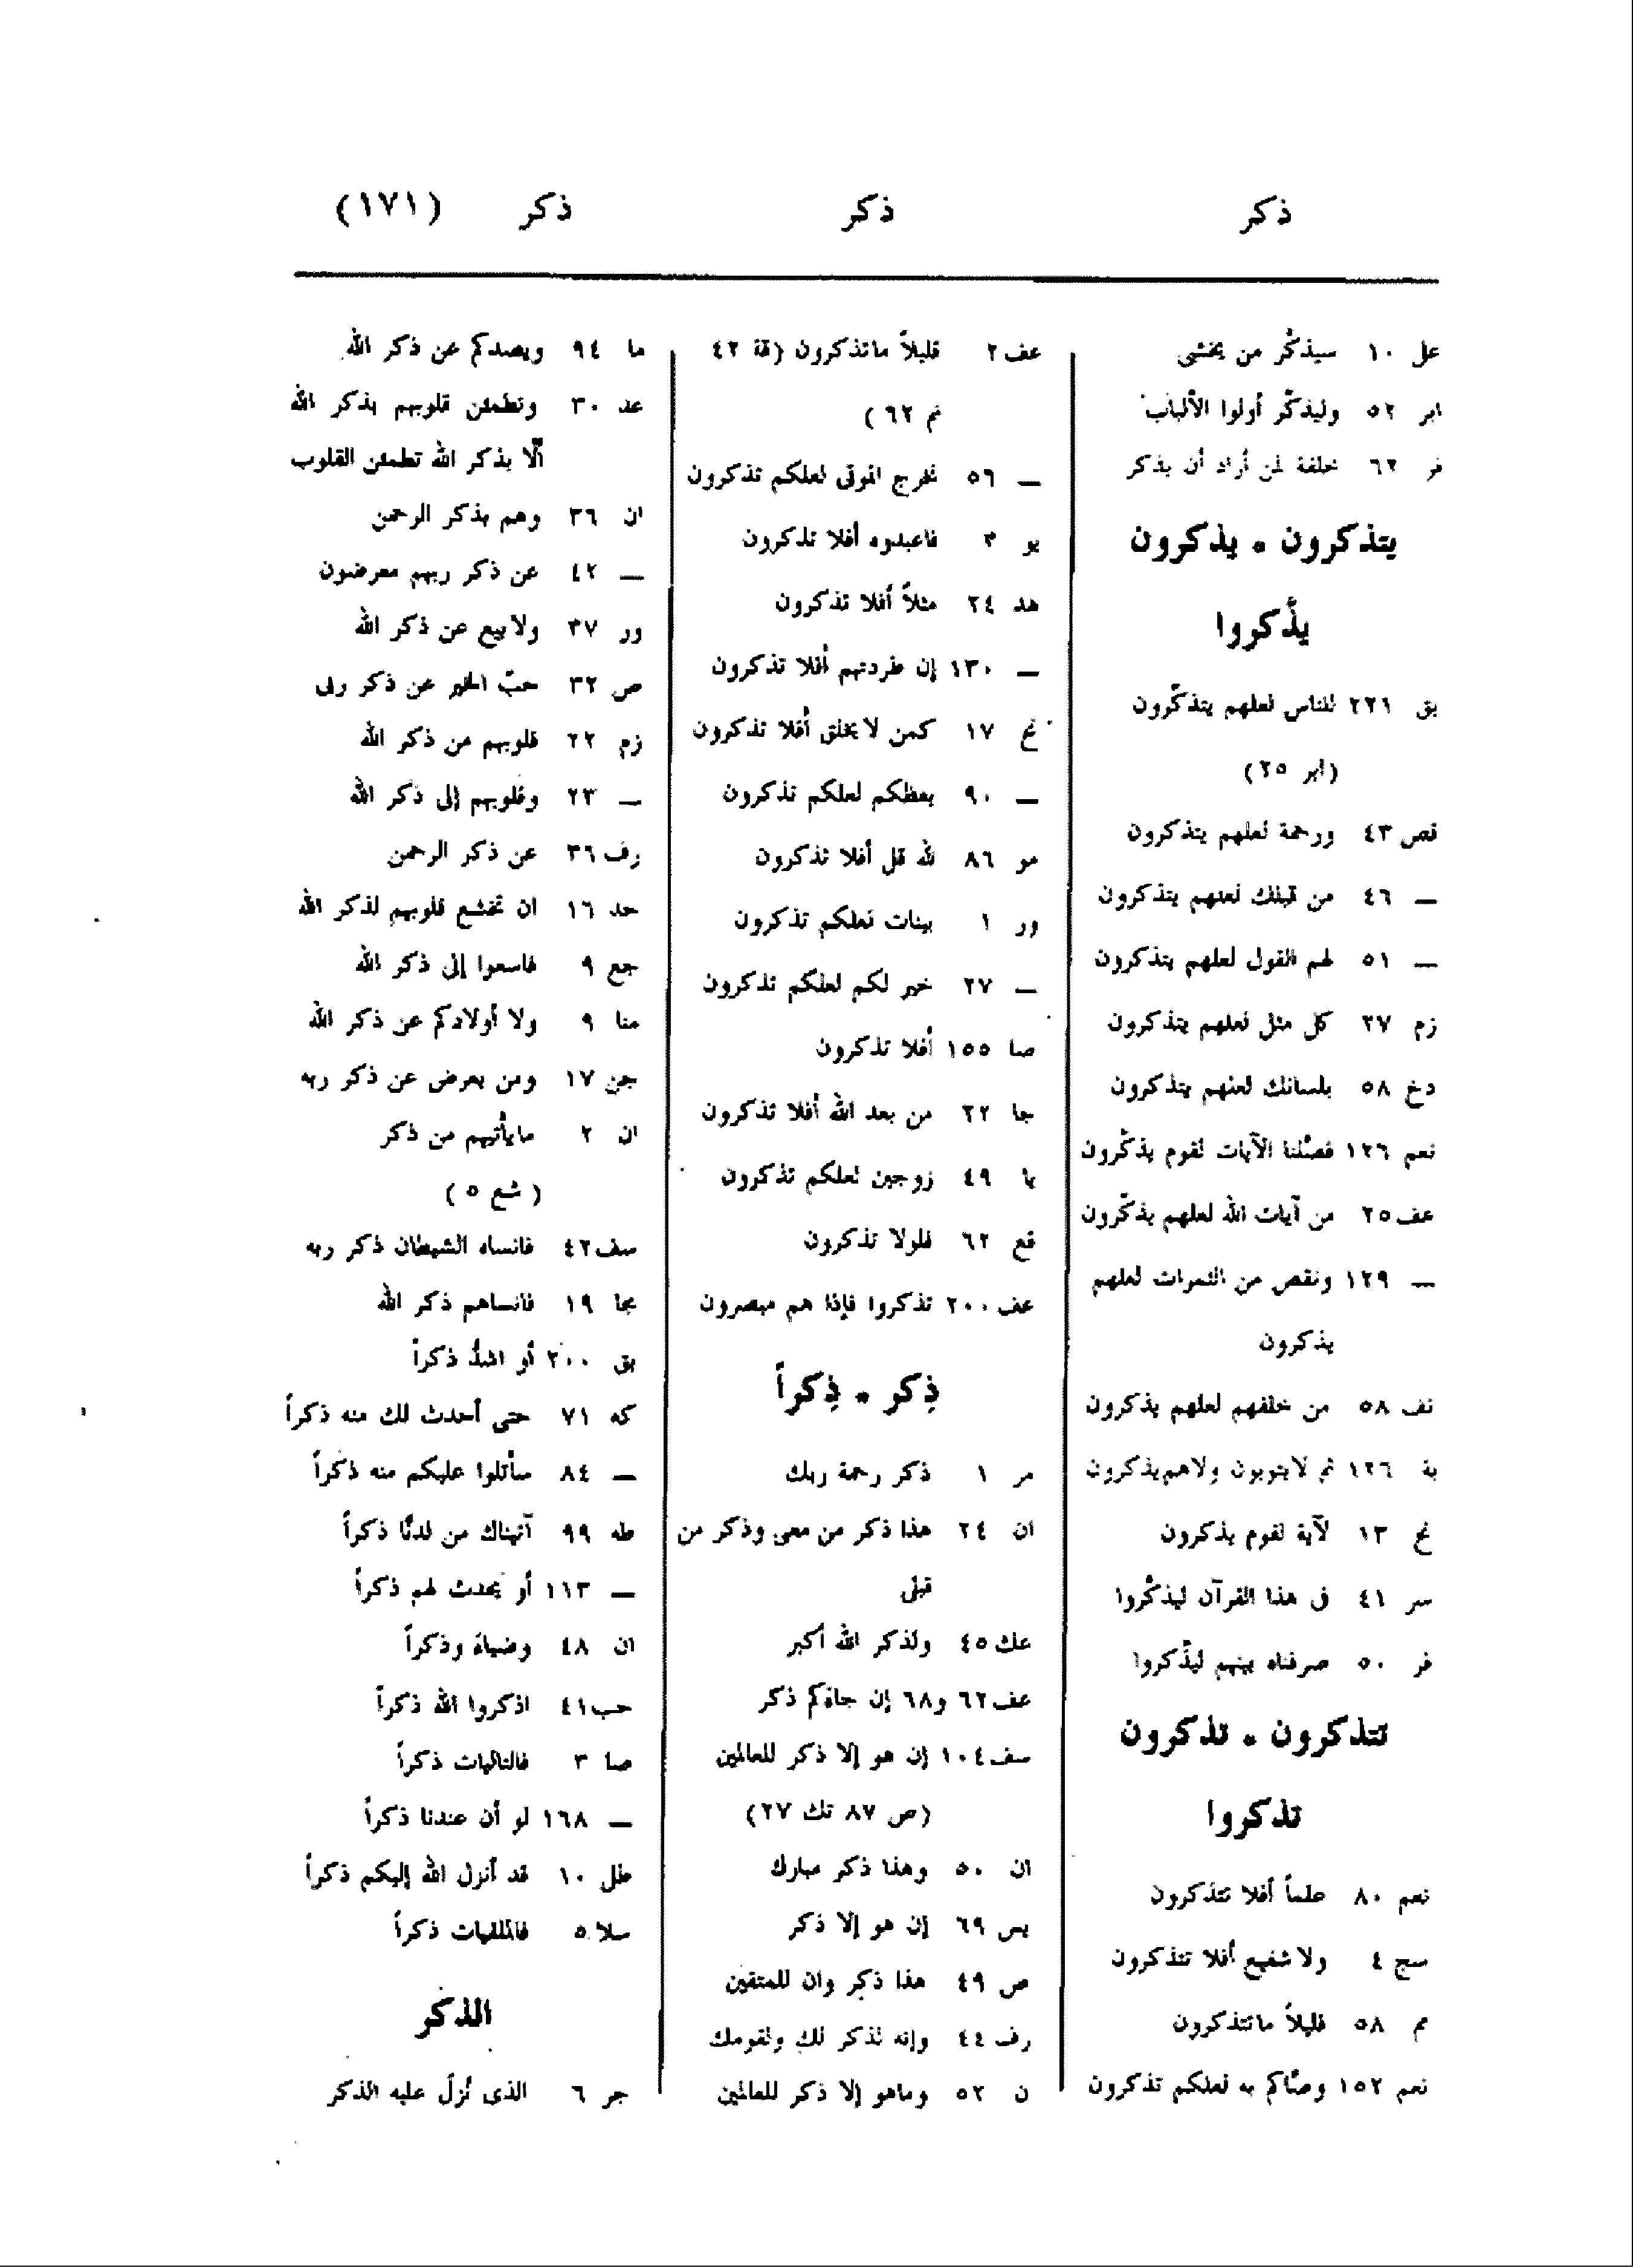 ذكر ذكر ذكر (١٧١)
عل ١٠ سيذكّر من يخشى
ابر ٥٢ وليذكّر أولوا الألباب
فر ٦٢ خلفة لمن أراد أن يذكر
يتذكرون ٠ يذكرون
يذّكروا
بق ٢٢١ للناس لعلهم يتذكّرون
(ابر ٢٥)
قص ٤٣ ورحمة لعلهم يتذكرون
— ٤٦ من قبلك لعلهم يتذكرون
— ٥١ لهم القول لعلهم يتذكرون
زم ٢٧ كل مثل لعلهم يتذكرون
دخ ٥٨ بلسانك لعلهم يتذكرون
نعم ١٢٦ فصّلنا الآيات لقوم يذكّرون
عف ٢٥ من آيات الله لعلهم يذكّرون
— ١٢٩ ونقص من الثمرات لعلهم
يذكرون
نف ٥٨ من خلفهم لعلهم يذكرون
بة ١٢٦ ثم لا يتوبون ولاهم يذكرون
نح ١٣ لآية لقوم يذكرون
سر ٤١ فى هذا القرآن ليذكّروا
فر ٥٠ صرفناه بينهم ليذّكروا
تتذكرون ٠ تذكرون
تذكروا
نعم ٨٠ علماً أفلا تتذكرون
سج ٤ ولا شفيع أفلا تتذكرون
مم ٥٨ قليلاً ماتتذكرون
نعم ١٥٢ وصّاكم به لعلكم تذكرون
عف ٢ قليلاً ماتذكرون (قة ٤٢
نم ٦٢)
— ٥٦ نخرج الموتى لعلكم تذكرون
يو ٣ فاعبدوه أفلا تذكرون
هد ٢٤ مثلاً أفلا تذكرون
— ١٣٠ إن طردتهم أفلا تذكرون
نح ١٧ كمن لا يخلق أفلا تذكرون
— ٩٠ يعظكم لعلكم تذكرون
مو ٨٦ لله قل أفلا تذكرون
ور ١ بينات لعلكم تذكرون
— ٢٧ خير لكم لعلكم تذكرون
صا ١٥٥ أفلا تذكرون
جا ٢٢ من بعد الله أفلا تذكرون
يا ٤٩ زوجين لعلكم تذكرون
قع ٦٢ فلولا تذكرون
عف ٢٠٠ تذكروا فإذا هم مبصرون
ذِكر ٠ ذِكراً
مر ١ ذكر رحمة ربك
ان ٢٤ هذا ذكر من معى وذكر من
قبلى
عك ٤٥ ولذكر الله أكبر
عف ٦٢ و٦٨ إن جاءكم ذكر
سف ١٠٤ إن هو إلا ذكر للعالمين
(ص ٨٧ تك ٢٧)
ان ٥٠ وهذا ذكر مبارك
يس ٦٩ إن هو إلا ذكر
ص ٤٩ هذا ذكر وان للمتقين
رف ٤٤ وإنه لذكر لك ولقومك
ن ٥٢ وماهو إلا ذكر للعالمين
ما ٩٤ ويصدكم عن ذكر الله
عد ٣٠ وتطمئن قلوبهم بذكر الله
ألّا بذكر الله تطمئن القلوب
ان ٣٦ وهم بذكر الرحمن
— ٤٢ عن ذكر ربهم معرضون
ور ٣٧ ولا بيع عن ذكر الله
ص ٣٢ حبّ الخير عن ذكر ربى
زم ٢٢ قلوبهم من ذكر الله
— ٢٣ وقلوبهم إلى ذكر الله
رف ٣٦ عن ذكر الرحمن
حد ١٦ ان تخشع قلوبهم لذكر الله
جع ٩ فاسعوا إلى ذكر الله
منا ٩ ولا أولادكم عن ذكر الله
جن ١٧ ومن يعرض عن ذكر ربه
ان ٢ مايأتيهم من ذكر
(شع ٥)
سف ٤٢ فانساه الشيطان ذكر ربه
مجا ١٩ فانساهم ذكر الله
بق ٢٠٠ أو اشدّ ذكراً
كه ٧١ حتى أحدث لك منه ذكراً
— ٨٤ سأتلوا عليكم منه ذكراً
طه ٩٩ آتيناك من لدنّا ذكراً
— ١١٣ أو يحدث لهم ذكراً
ان ٤٨ وضياءً وذكراً
حب ٤١ اذكروا الله ذكراً
صا ٣ فالتاليات ذكراً
— ١٦٨ لو أن عندنا ذكراً
طل ١٠ قد أنزل الله إليكم ذكراً
سلا ٥ فالملقيات ذكراً
الذكر
جر ٦ الذى نُزلّ عليه الذكر